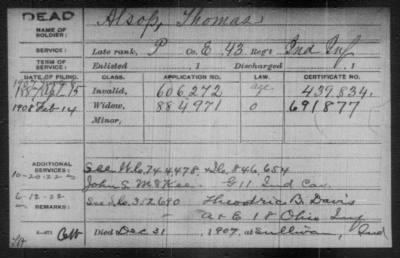 DEAD
NAME OF SOLDIER: Alsop, Thomas
SERVICE: Late rank, P Co. E, 43 Reg't Ind Inf
TERM OF SERVICE: Enlisted , 1 Discharged , 1
DATE OF FILING. CLASS. APPLICATION NO. LAW. CERTIFICATE NO.
15 Invalid, 606,272 age 439,834.
1908 Feb 14 Widow, 884,971 0 691877
Minor,
ADDITIONAL SERVICES: See W.C. 744478 & Ro. 846,654
10-20-22
John S. McKee. G 11 Ind Cav.
6-12-22 See No. 352690 Theodric B. Davis
REMARKS:
A & E 18 Ohio Inf
Died Dec 31, 1907, at Sullivan, Ind